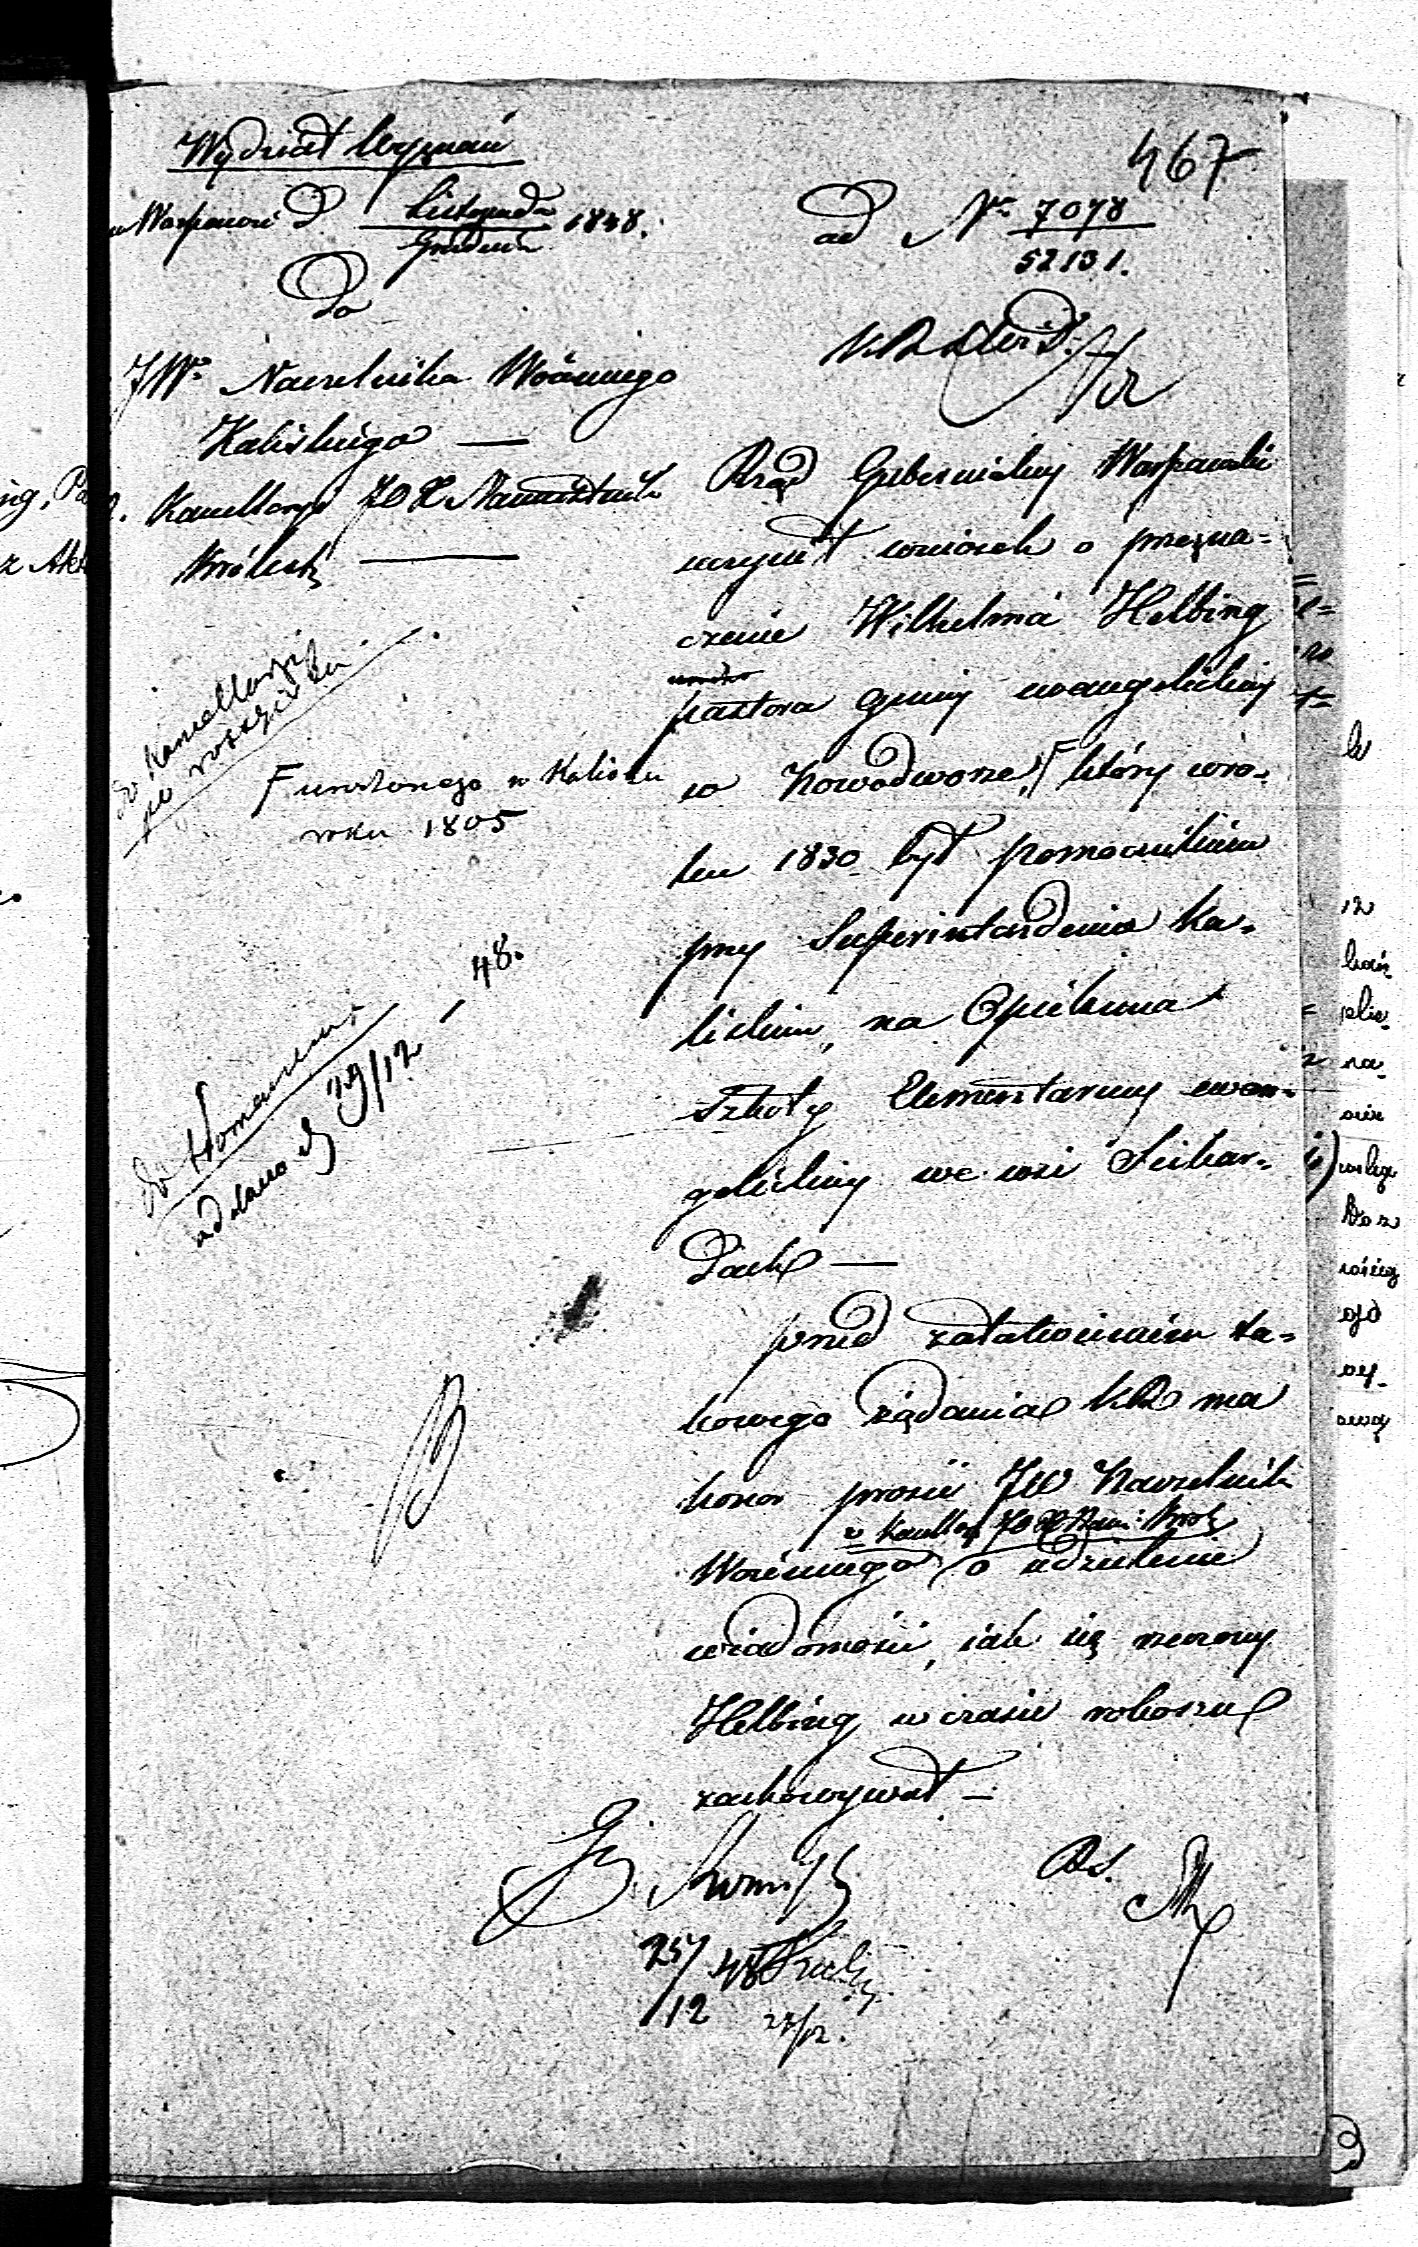 467
Wydział Wyznań
w Warszawie D. Listopada 1848.
Grudnia
ad Nr 7078
52131.
Do
JWo Naczelnika Woiennego
Kaliskiego —
Kancellaryi JO X Namiestnika
Królest. —
do Kancellaryi
po rozszycia
F urodzonego w Kaliszu
roku 1805
48.
odesłano d 29/12
Rząd Gubernialny Warszawski
uczynił wniosek o przezna=
czenie Wilhelma Helbing
pastora gminy ewangelickiey
w Nowodworze, F który wro-
ku 1830 był pomocnikiem
przy Superintendencie Ka-
liskim, na Opiekuna
Szkoły Elementarney ewan-
gelickiey we wsi Ścibor-
dach —
przed załatwieniem ta-
kowego żądania KR ma
honor prosić JW Naczelnika
w Kancellaryi JO X Nam: Król
Woiennego o udzielenie
wiadomości, iak się rzeczony
Helbing w czasie rokoszu
zachowywał —
25/12 48
27/12.